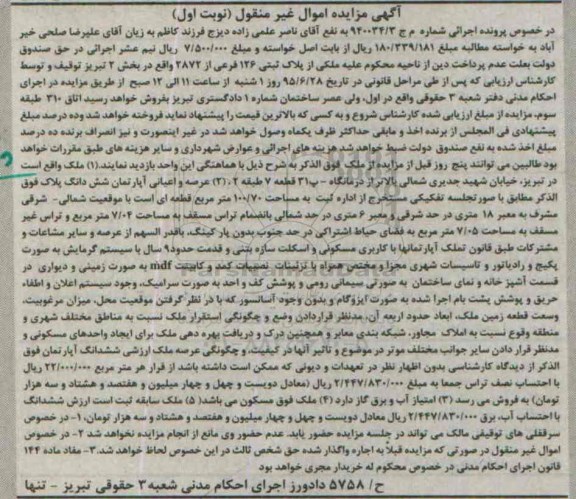 آگهی مزایده اموال غیر منقول (نوبت اول)
در خصوص پرونده اجرائی شماره م ج ۹۴۰۰۳۴/۳ به نفع آقای ناصر علمی زاده دیزج فرزند کاظم به زیان آقای علیرضا صلحی خیر
آباد به خواسته مطالبه مبلغ ۱۸۰/۳۳۹/۱۸۱ ریال از بابت اصل خواسته و مبلغ ۷/۵۰۰/۰۰۰ ریال نیم عشر اجرائی در حق صندوق
دولت بعلت عدم پرداخت دین از ناحیه محکوم علیه ملکی از پلاک ثبتی ۱۲۶ فرعی از ۲۸۷۲ واقع در بخش ۲ تبریز توقیف و توسط
کارشناس ارزیابی که پس از طی مراحل قانونی در تاریخ ۹۵/۶/۲۸ روز ۱ شنبه از ساعت ۱۱ الی ۱۲ صبح از طریق مزایده در اجرای
احکام مدنی دفتر شعبه ۳ حقوقی واقع در اول، ولی عصر ساختمان شماره ۱ دادگستری تبریز بفروش خواهد رسید اتاق ۳۱۰ طبقه
سوم، مزایده از مبلغ ارزیابی شده کارشناس شروع و به کسی که بالاترین قیمت را پیشنهاد نماید فروخته خواهد شد وده درصد مبلغ
پیشنهادی فی المجلس از برنده اخذ و مابقی حداکثر ظرف یکماه وصول خواهد شد در غیر اینصورت و نیز انصراف برنده ده درصد
مبلغ اخذ شده به نفع صندوق دولت ضبط خواهد شد هزینه های اجرائی و عوارض شهرداری و سایر هزینه های طبق مقررات خواهد
بود طالبین می توانند پنج روز قبل از مزایده از ملک فوق الذکر به شرح ذیل با هماهنگی این واحد بازدید نمایند.(۱) ملک واقع است
در تبریز، خیابان شهید جدیری شمالی بالاتر از درمانگاه – پ۳۱ قطعه ۷ طبقه ۲. (۲) عرصه و اعیانی آپارتمان شش دانگ پلاک فوق
الذکر مطابق با صورتجلسه تفکیکی مستخرج از اداره ثبت به مساحت ۱۰۰/۷۰ متر مربع قطعه ای است با موقعیت شمالی- شرقی
مشرف به معبر ۱۸ متری در حد شرقی و معبر ۶ متری در حد شمالی بانضمام تراس مسقف به مساحت ۷/۰۴ متر مربع و تراس غیر
مسقف به مساحت ۷/۰۵ متر مربع به فضای حیاط اشتراکی در حد جنوب بدون پارکینگ، باقدر السهم از عرصه و سایر مشاعات و
مشترکات طبق قانون تملک آپارتمانها با کاربری مسکونی و اسکلت سازه بتنی و قدمت حدود۹ سال با سیستم گرمایش به صورت
پکیج و رادیاتور و تاسیسات شهری مجزا و مختص همراه با تزئینات نصبیات کمد و کابینت mdf به صورت زمینی و دیواری در
قسمت آشپز خانه و نمای ساختمان به صورتی سیمانی رومی و پوشش کف و احد به صورت سرامیک، وجود سیستم اعلان و اطفاء
حریق و پوشش پشت بام اجرا شده به صورت ایزوگام و بدون وجود آسانسور که با در نظر گرفتن موقعیت محل، میزان مرغوبیت،
وسعت قطعه زمین ملک، ابعاد حدود اربعه آن، مدنظر قراردادن وضع و چگونگی استقرار ملک نسبت به مناطق مختلف شهری و
منطقه وقوع نسبت به املاک مجاور، شبکه بندی معابر و همچنین درک و دریافت بهره دهی ملک برای ایجاد واحدهای مسکونی و
مدنظر قرار دادن سایر جوانب مختلف موتر در موضوع و تاثیر آنها در کیفیت، و چگونگی عرصه ملک ارزشی ششدانگ آپارتمان فوق
الذکر از دیدگاه کارشناسی بدون اظهار نظر در تعهدات و دیونی که ممکن است داشته باشد از قرار هر متر مربع ۲۲/۰۰۰/۰۰۰ ریال
با احتساب نصف تراس جمعا به مبلغ ۲/۴۴۷/۸۳۰/۰۰۰ ریال (معادل دویست و چهل و چهار میلیون و هفتصد و هشتاد و سه هزار
تومان) به فروش می رسد (۳) امتیاز آب و برق گاز دارد (۴) ملک فوق مسکون می باشد( ۵) ملک سابقه ثبت است ارزش ششدانگ
با احتساب آب، برق ۲/۴۴۷/۸۳۰/۰۰۰ ریال معادل دویست و چهل و چهار میلیون و هفتصد و هشتاد و سه هزار تومان، ۱- در خصوص
سرقفلی های توقیفی مالک می تواند در جلسه مزایده حضور یابد. عدم حضور وی مانع از انجام مزایده نخواهد شد ۲- در خصوص
اموال غیر منقول در صورتی که مزایده قبلاً به اجاره واگذار شده حق شخص ثالث در این خصوص لحاظ خواهد شد. ۳- مفاد ماده ۱۴۴
قانون اجرای احکام مدنی در خصوص محکوم له خریدار مجری خواهد بود
ح/ ۵۷۵۸ دادورز اجرای احکام مدنی شعبه ۳ حقوقی تبریز – تنها